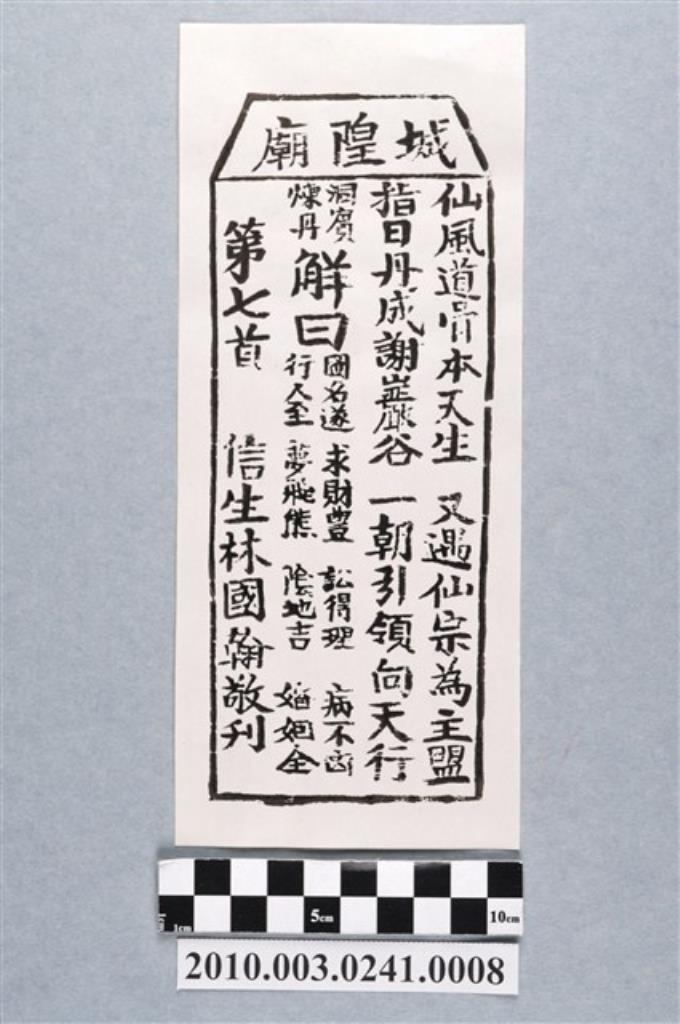 城隍廟
仙風道骨本天生 又遇仙宗為主盟
指日丹成謝巖谷 一朝引領向天行
洞賓
煉丹
解曰
圖名遂 求財豐 訟得理 病不凶
行人至 夢飛熊 陰地吉 婚姻全
第七首 信生林國翰敬刋
5cm
10cm
1cm
2010.003.0241.0008